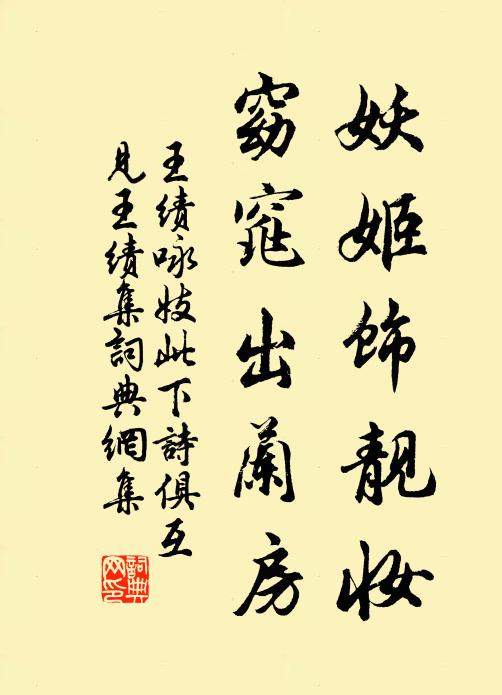 妖姬飾靚妝
窈窕出蘭房
王績咏妓此下詩俱互
見王績集詞典網集
詞典网印